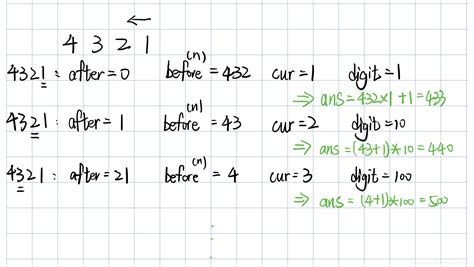 4 3 2 1
4321 : after = 0 before(n) = 432 cur = 1 digit = 1
⇒ ans = 432×1 + 1 = 433
4321 : after = 1 before(n) = 43 cur = 2 digit = 10
⇒ ans = (43+1)*10 = 440
4321 : after = 21 before(n) = 4 cur = 3 digit = 100
⇒ ans = (4+1)*100 = 500